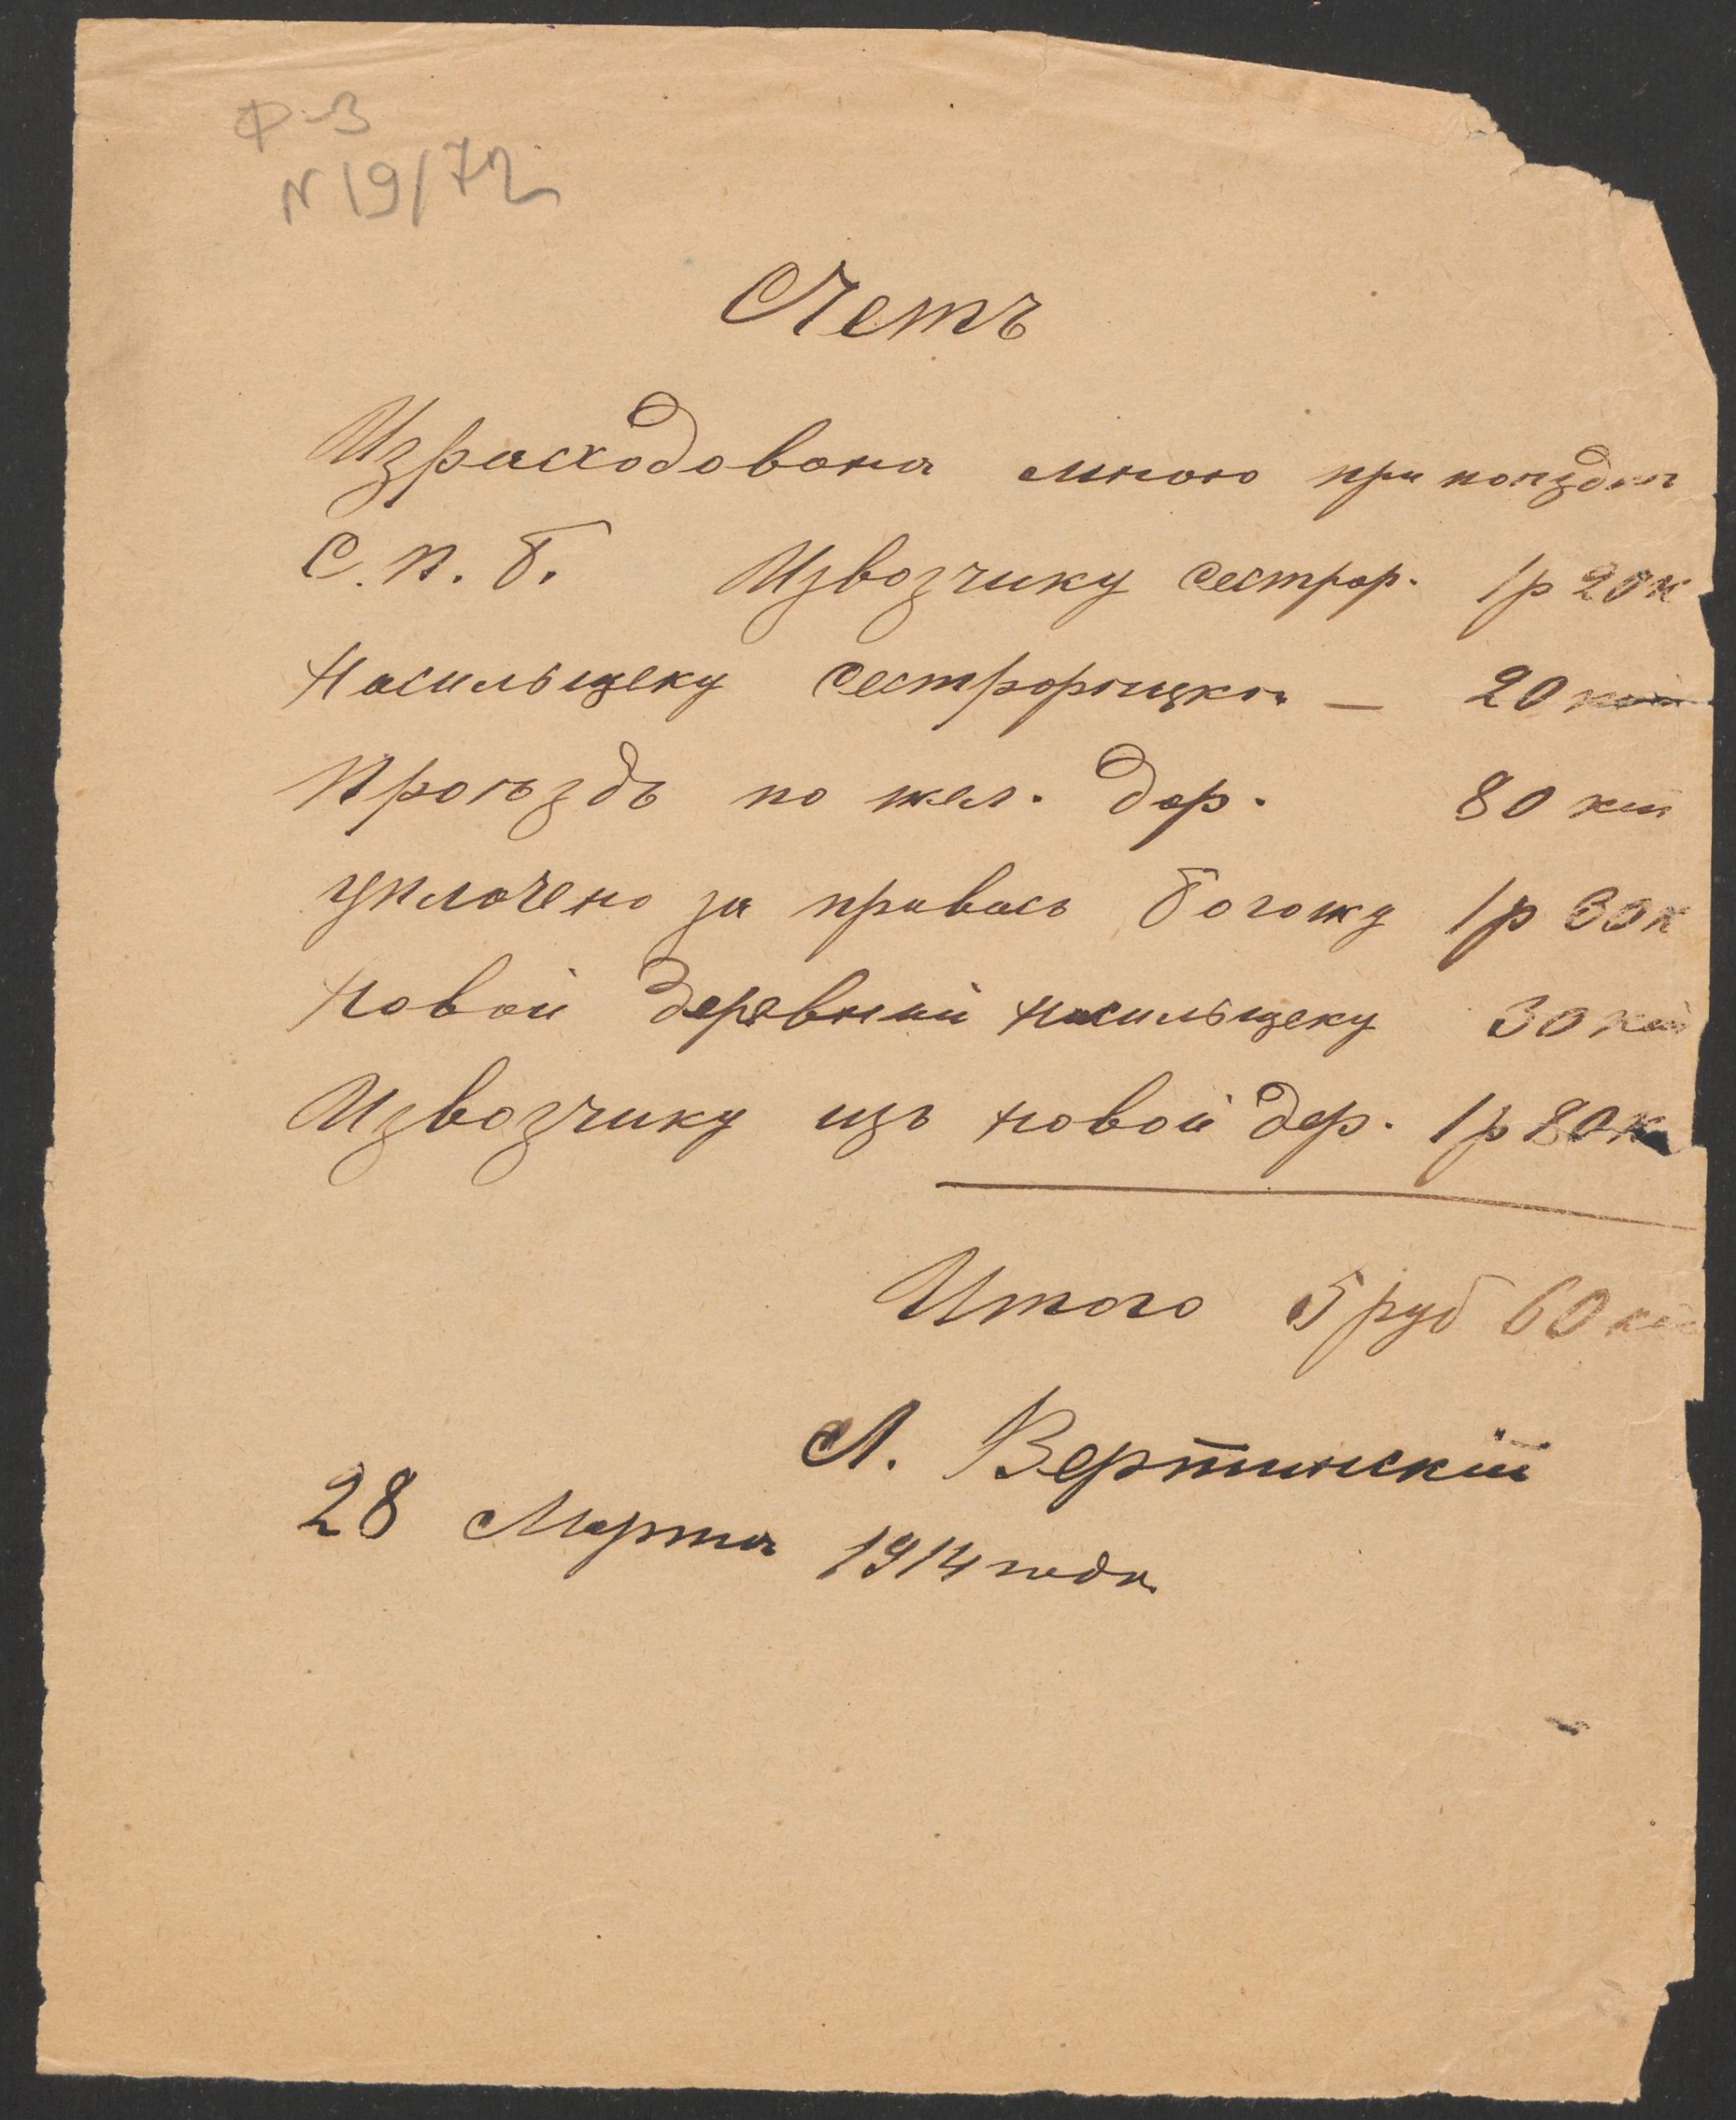 Ф-3
N 19/72
Счетъ
Израсходовано мною при поездки
С.П.Б. Извозчику сестрор. 1р 20к
Насильщеку сестрорецком — 20 коп
Проѣздъ по жел. дор. 80 коп
уплочено за провозъ богожу 1р 30к
Новой деревний насильщеку 30 коп
Извозчику изъ новой дер. 1р 80к
Итого 5 руб 60 коп
А. Вертинскій
28 Марта 1914 года